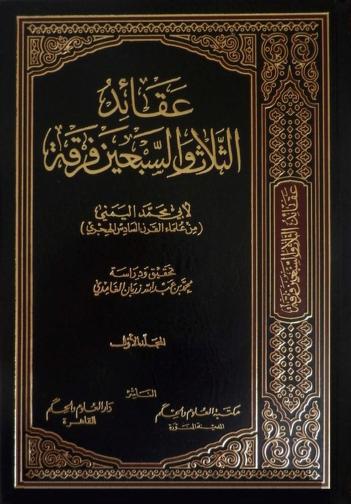 عقائد
الثلاث والسبعين فرقة
لأبي محمد اليمني
(من علماء القرن السادس الهجري)
تحقيق ودراسة
محمد بن عبد الله زربان الغامدي
المجلد الأول
الناشر
مكتبة العلوم والحكم
المدينة المنورة
دار العلوم والحكم
القاهرة
عقائد الثلاث والسبعين فرقة